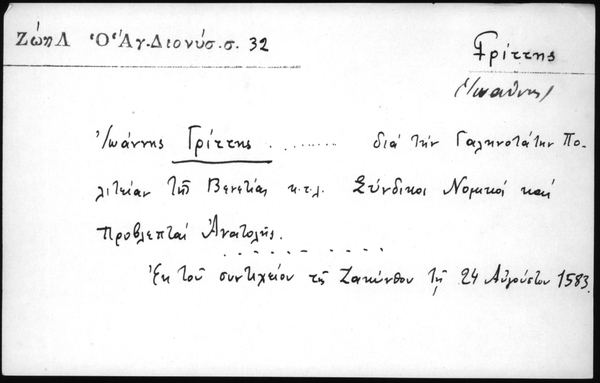 Ζώη Λ Ὁ Ἅγ. Διονύσ. σ. 32
Γρίττης
(Ἰωάννης)
Ἰωάννης Γρίττης . . ........ διά τήν Γαληνοτάτην Πο-
λιτείαν τῆς Βενετίας κ.τ.λ. Σύνδικοι Νομικοί καί
Προβλεπταί Ἀνατολῆς.
. . . . . . . .
Ἐκ τοῦ συντιχείου τῆς Ζακύνθου τῇ 24 Αὐγούστου 1583.